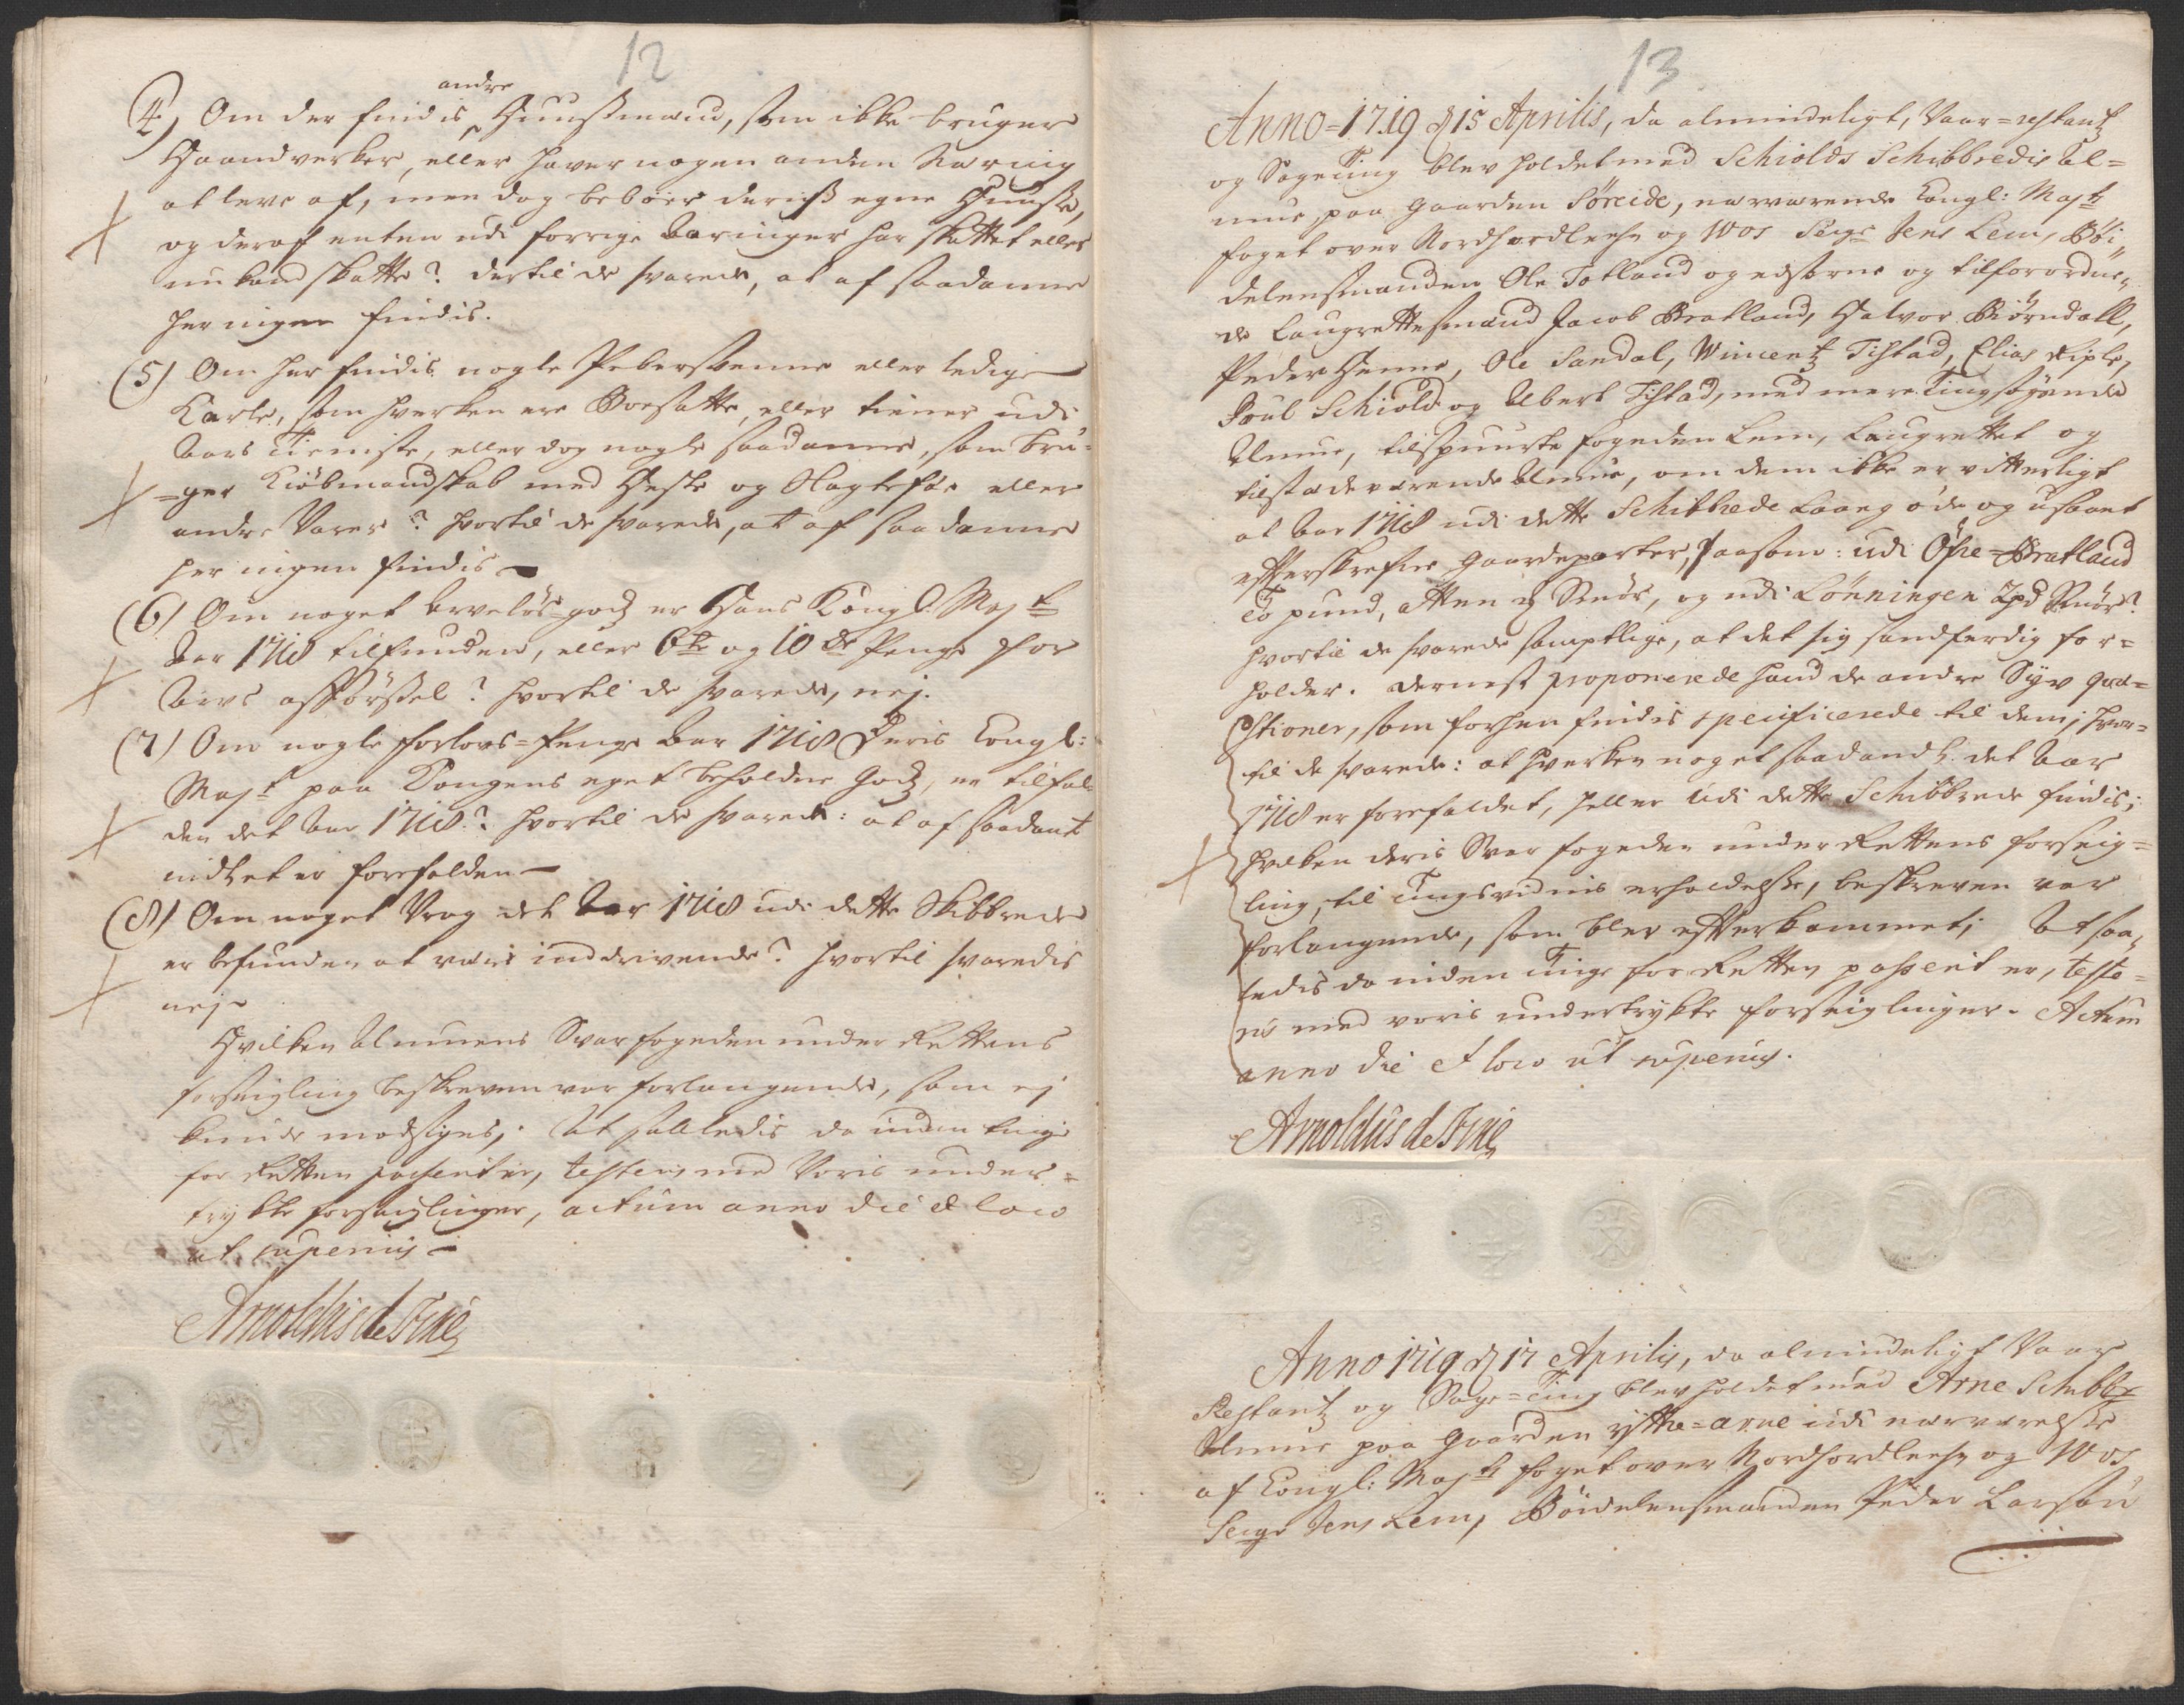 12
andre
4) Om der findis Huusmænd, som icke bruger
Haandverker, eller hafver nogen anden Næring
at leve af, men dog beboer deriss egne Huusse,
og deraf enten udi forrige Aaringer har skattet eller
nu kand skatte? dertil de svarede, at af saadanne
her ingen findis.
(5) Om her findis nogle Pebersvenne eller ledige
Karle, som hverken ere Boesatte, eller tiener udi
Aars Tieniste, eller dog nogle saadanne, som bru-
=ger Kiöbmandskab med Heste og Slagtefæ eller
andre Varer? hvortil de svarede, at af saadanne
her ingen findis
(6) Om noget Arvelös-gods er Hans Kongl: Majt
Aar 1718 tilfunden, eller 6te og 10de Penge for
Arvs afförsel? hvortil de svarede, nej.
(7) Om nogle forlovs=Penge Aar 1718 Deris Congl:
Majt paa Kongens eget beholdne Gods, er tilfal-
den det Aar 1718? hvortil de svarede: at af saadant
indtet er forefalden
(8) Om noget Vrag det Aar 1718 udi dette Skibbrede
er befunden at være inddrivende? hvortil svaredis
nej
Hvilken Almuens Svar fogeden under Rettens
forseigling beskreven var forlangende, som ej
kunde modsiges; At saaledis da inden tinge
for Retten passerit er, testerer med Voris under=
trykte forseiglinger, actum anno die et loco
ut supenius
Arnoldus de Fine
13
Anno=1719 d 15 Aprilis, da almindeligt, Vaar=restantz
og Sageting blev holdet med Schiolds Schibbredis Al=
mue, paa gaarden Söreide, nærværende Congl: Majts
foget over Nordhordlehn og Wos Seigr Jens Lem, Böi-
delensmanden Ole Totland og edsorne og tilforordne-
de Laugrettesmænd Jacob Bratland, Halvor Biörndall,
Peder Henne, Ole Sandal, Wincentz Tistad, Elias Riple,
Poul Schiold og Albert Tistad, med mere tingsögende
Almue, tilspurte fogeden Lem, Laugrettet og
tilstedeværende Almue, om dem icke er vitterligt
at Aar 1718 udi dette Schibbrede Laaeg öde og usaaet
efterskrefne gaardeparter, saasom: udi Öfre=Bratland
To pund, atten M Smör, og udi Lönningen 2pd Smör?
hvortil de svarede samptlige, at det sig sandferdig for=
holder. dernest proponerede hand de andre Syv qvæ=
stioner, som forhen findis specificerede til dem; hvor=
til de svarede: at hverken noget saadandt det Aar
1718 er forefaldet, heller udi dette Schibbrede findis;
hvilken deris Svar fogeden under Rettens forseig=
ling, til tingsvidnis erholdelsse, beskreven var
forlangende, som blev efterkommet; At saa-
ledis da inden Tinge for Retten passerit er, teste=
ris med voris undertrykte forseiglinger. Actum
anno die et loco ut supenius.
Arnoldus de Fine
Anno 1719 d 17 Aprilis, da almindeligt Vaar
Restantz og Sage=ting blev holdet med Arne Schibbr
Almue paa gaarden ytthe=arne udi nærværelsse
af Congl: Majts foget over Nordhordlehn og Wos
Seigr Jens Lem, Böidelensmanden Peder Larssön